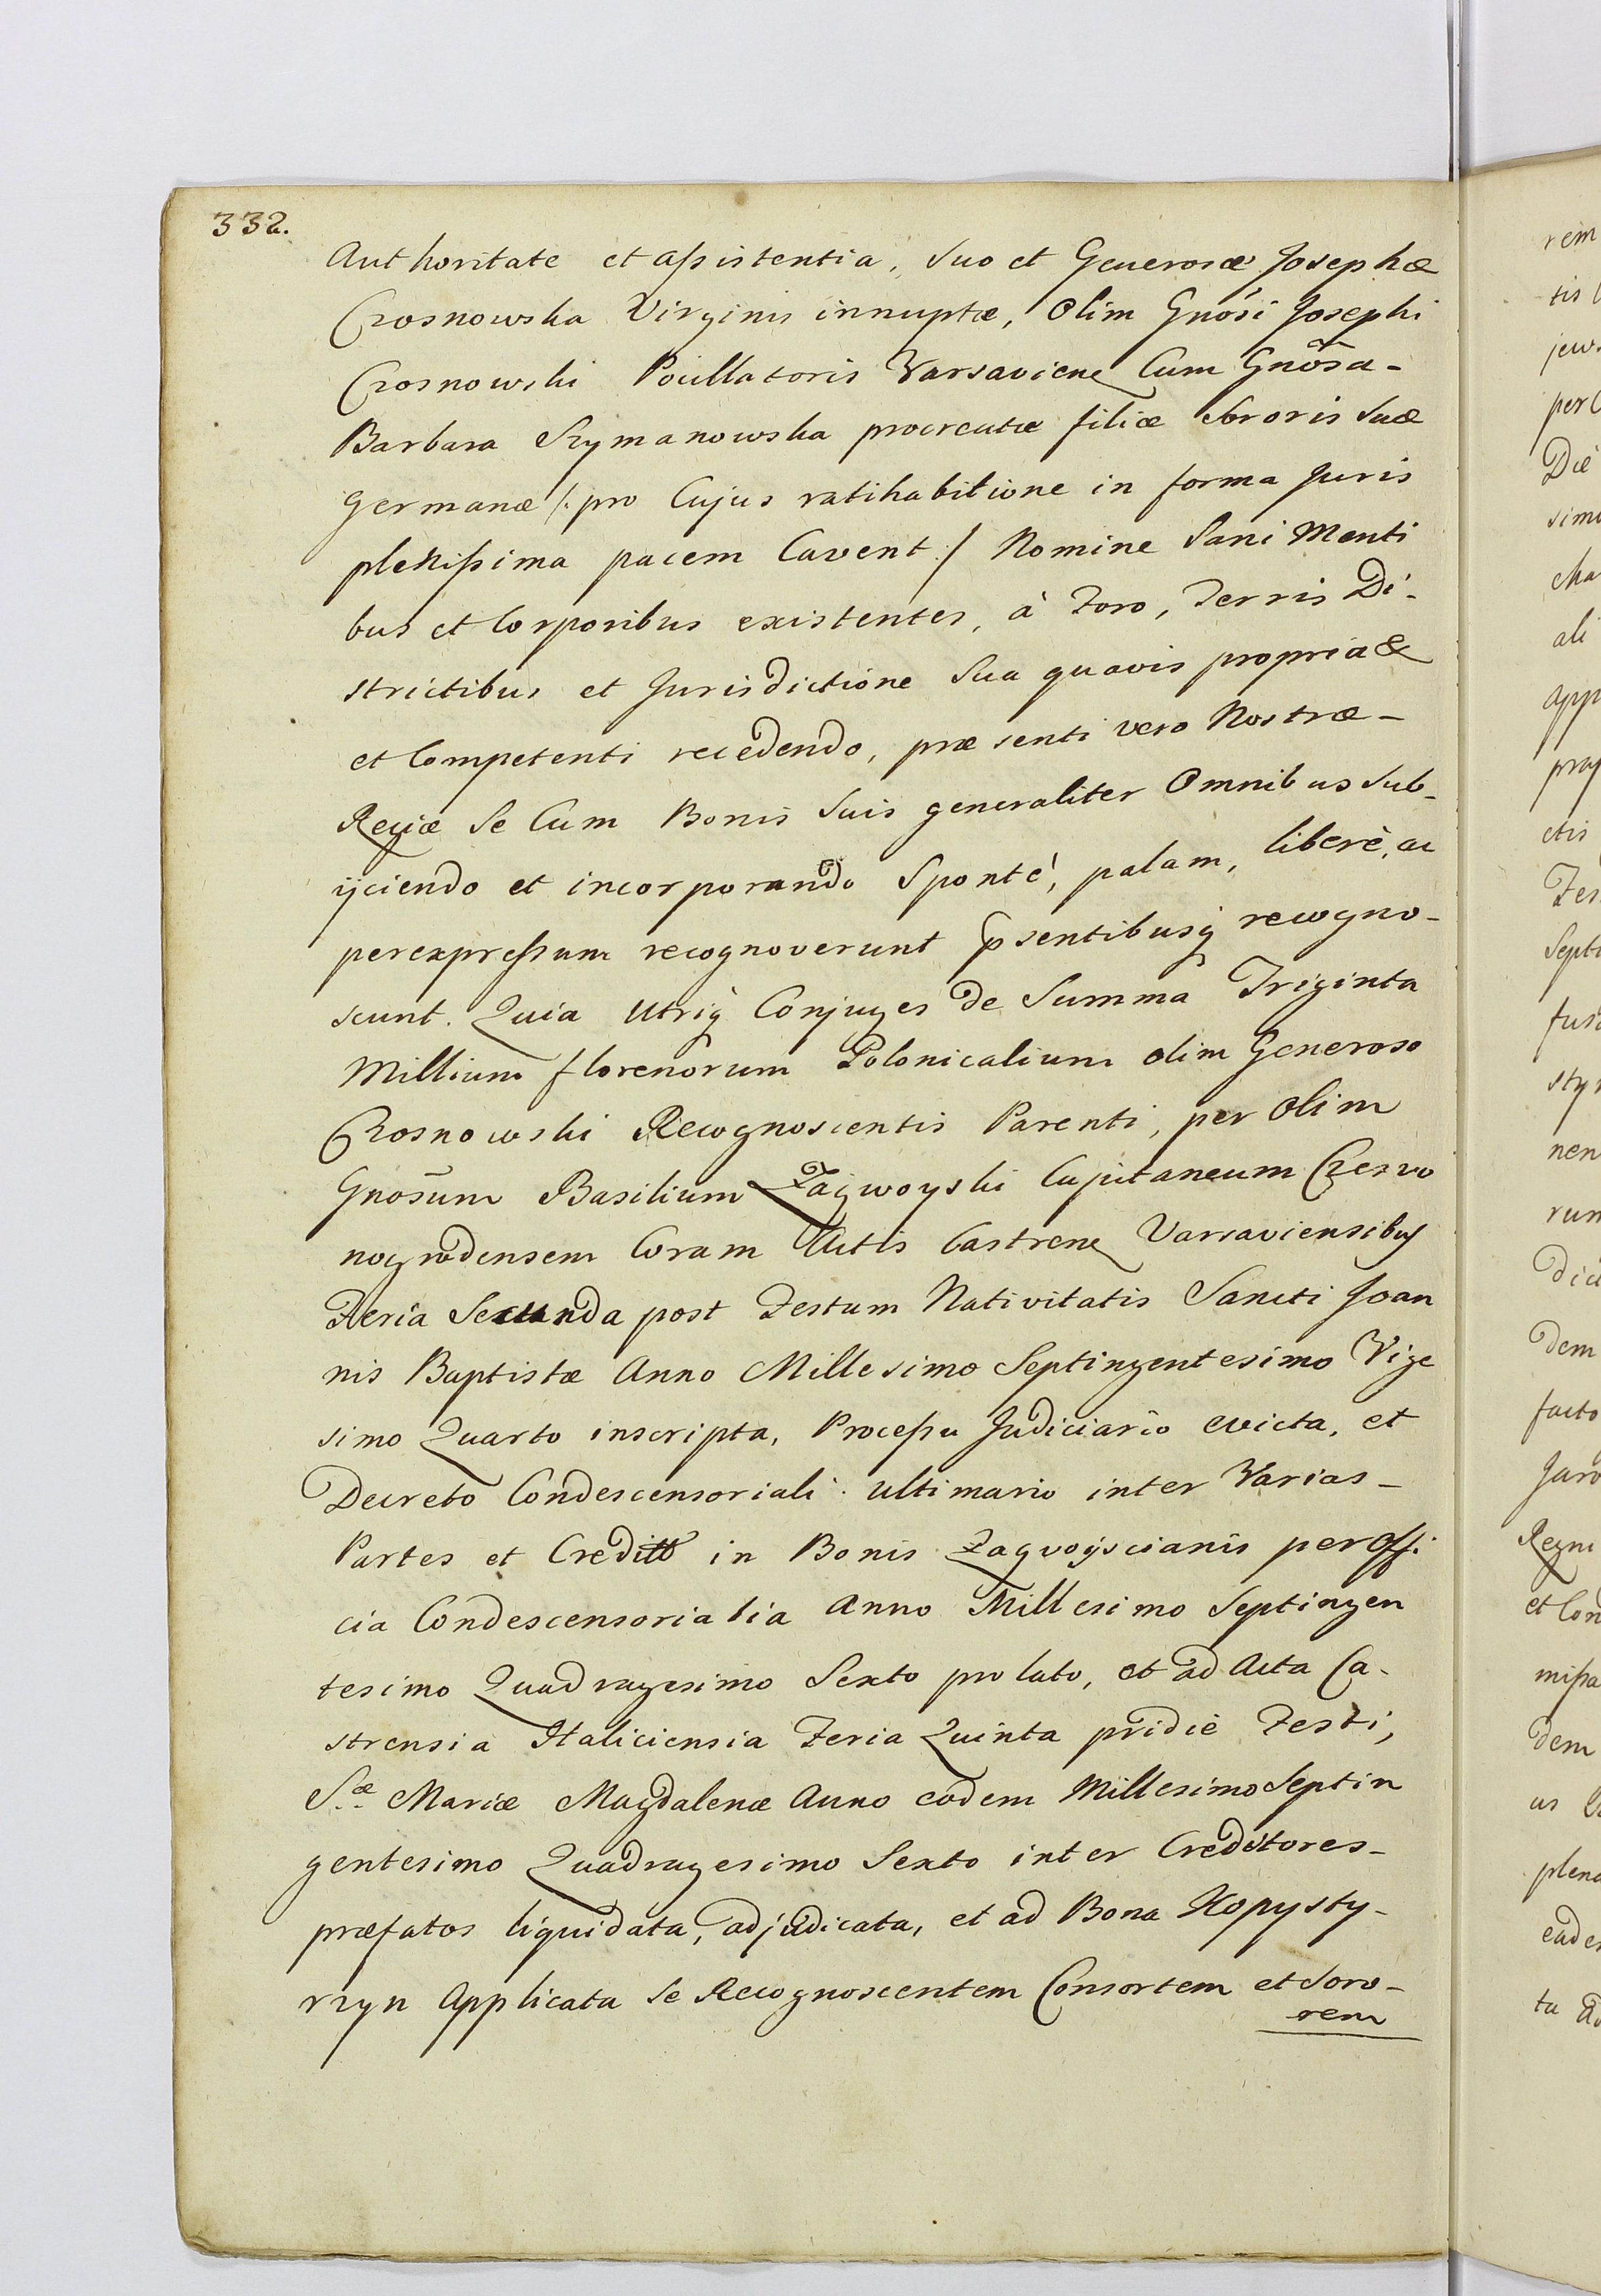 332.
Authoritate et assistentia, suo et Generosæ Josephæ
Crosnowska Virginis innuptæ, Olim Gnosi Josephi
Crosnowski Pocillatoris Varsaviene Cum Gnosa-
Barbara Szymanowska procreatæ filiæ Sororis suæ
germanæ /: pro Cujus ratihabitione in forma Juris
plenissima pacem Cavent :/ Nomine Sani Menti
bus et Corporibus existentes, à Foro, Terris Di-
strictibus et Jurisdictione Sua quavis propria &
et Competenti recedendo, præsenti vero Nostræ-
Regiæ se Cum Bonis Suis generaliter Omnibus Sub-
ijciendo et incorporando Sponté, palam, liberè, ac
perexpressum recognoverunt psentibusq recogno-
scunt. Quia Utriq Conjuges de Summa Triginta
Millium florenorum Polonicalium olim Generoso
Crosnowski Recognoscentis Parenti, per Olim
Gnosum Basilium Zagwoyski Capitaneum Czerwo
nogrodensem Coram Actis Castrene Varsaviensibus
Feria Secunda post Festum Nativitatis Sancti Joan
nis Baptistæ Anno Millesimo Septingentesimo Vige
simo Quarto inscripta, Processu Judiciario evicta, et
Decreto Condescensoriali ultimario inter Varias-
Partes et Creditt in Bonis Zagvoyscianis per Offi
cia Condescensorialia Anno Millesimo Septingen
tesimo Quadragesimo Sexto prolato, et ad Acta Ca-
strensia Haliciensia Feria Quinta pridiè Festi,
Sæ Mariæ Magdalenæ Anno eodem Millesimo Septin
gentesimo Quadragesimo Sexto inter Creditores-
præfatos liquidata, adjudicata, et ad Bona Kopysty-
rzyn Applicata se Recognoscentem Consortem et Soro-
rem
rem
tis
jew.
per
Die
ali
app
etis
Fes
Septi
nen
rum
dem
facto
Jaro
Regni
et Con
missa
dem
us
plena
eadem
ta